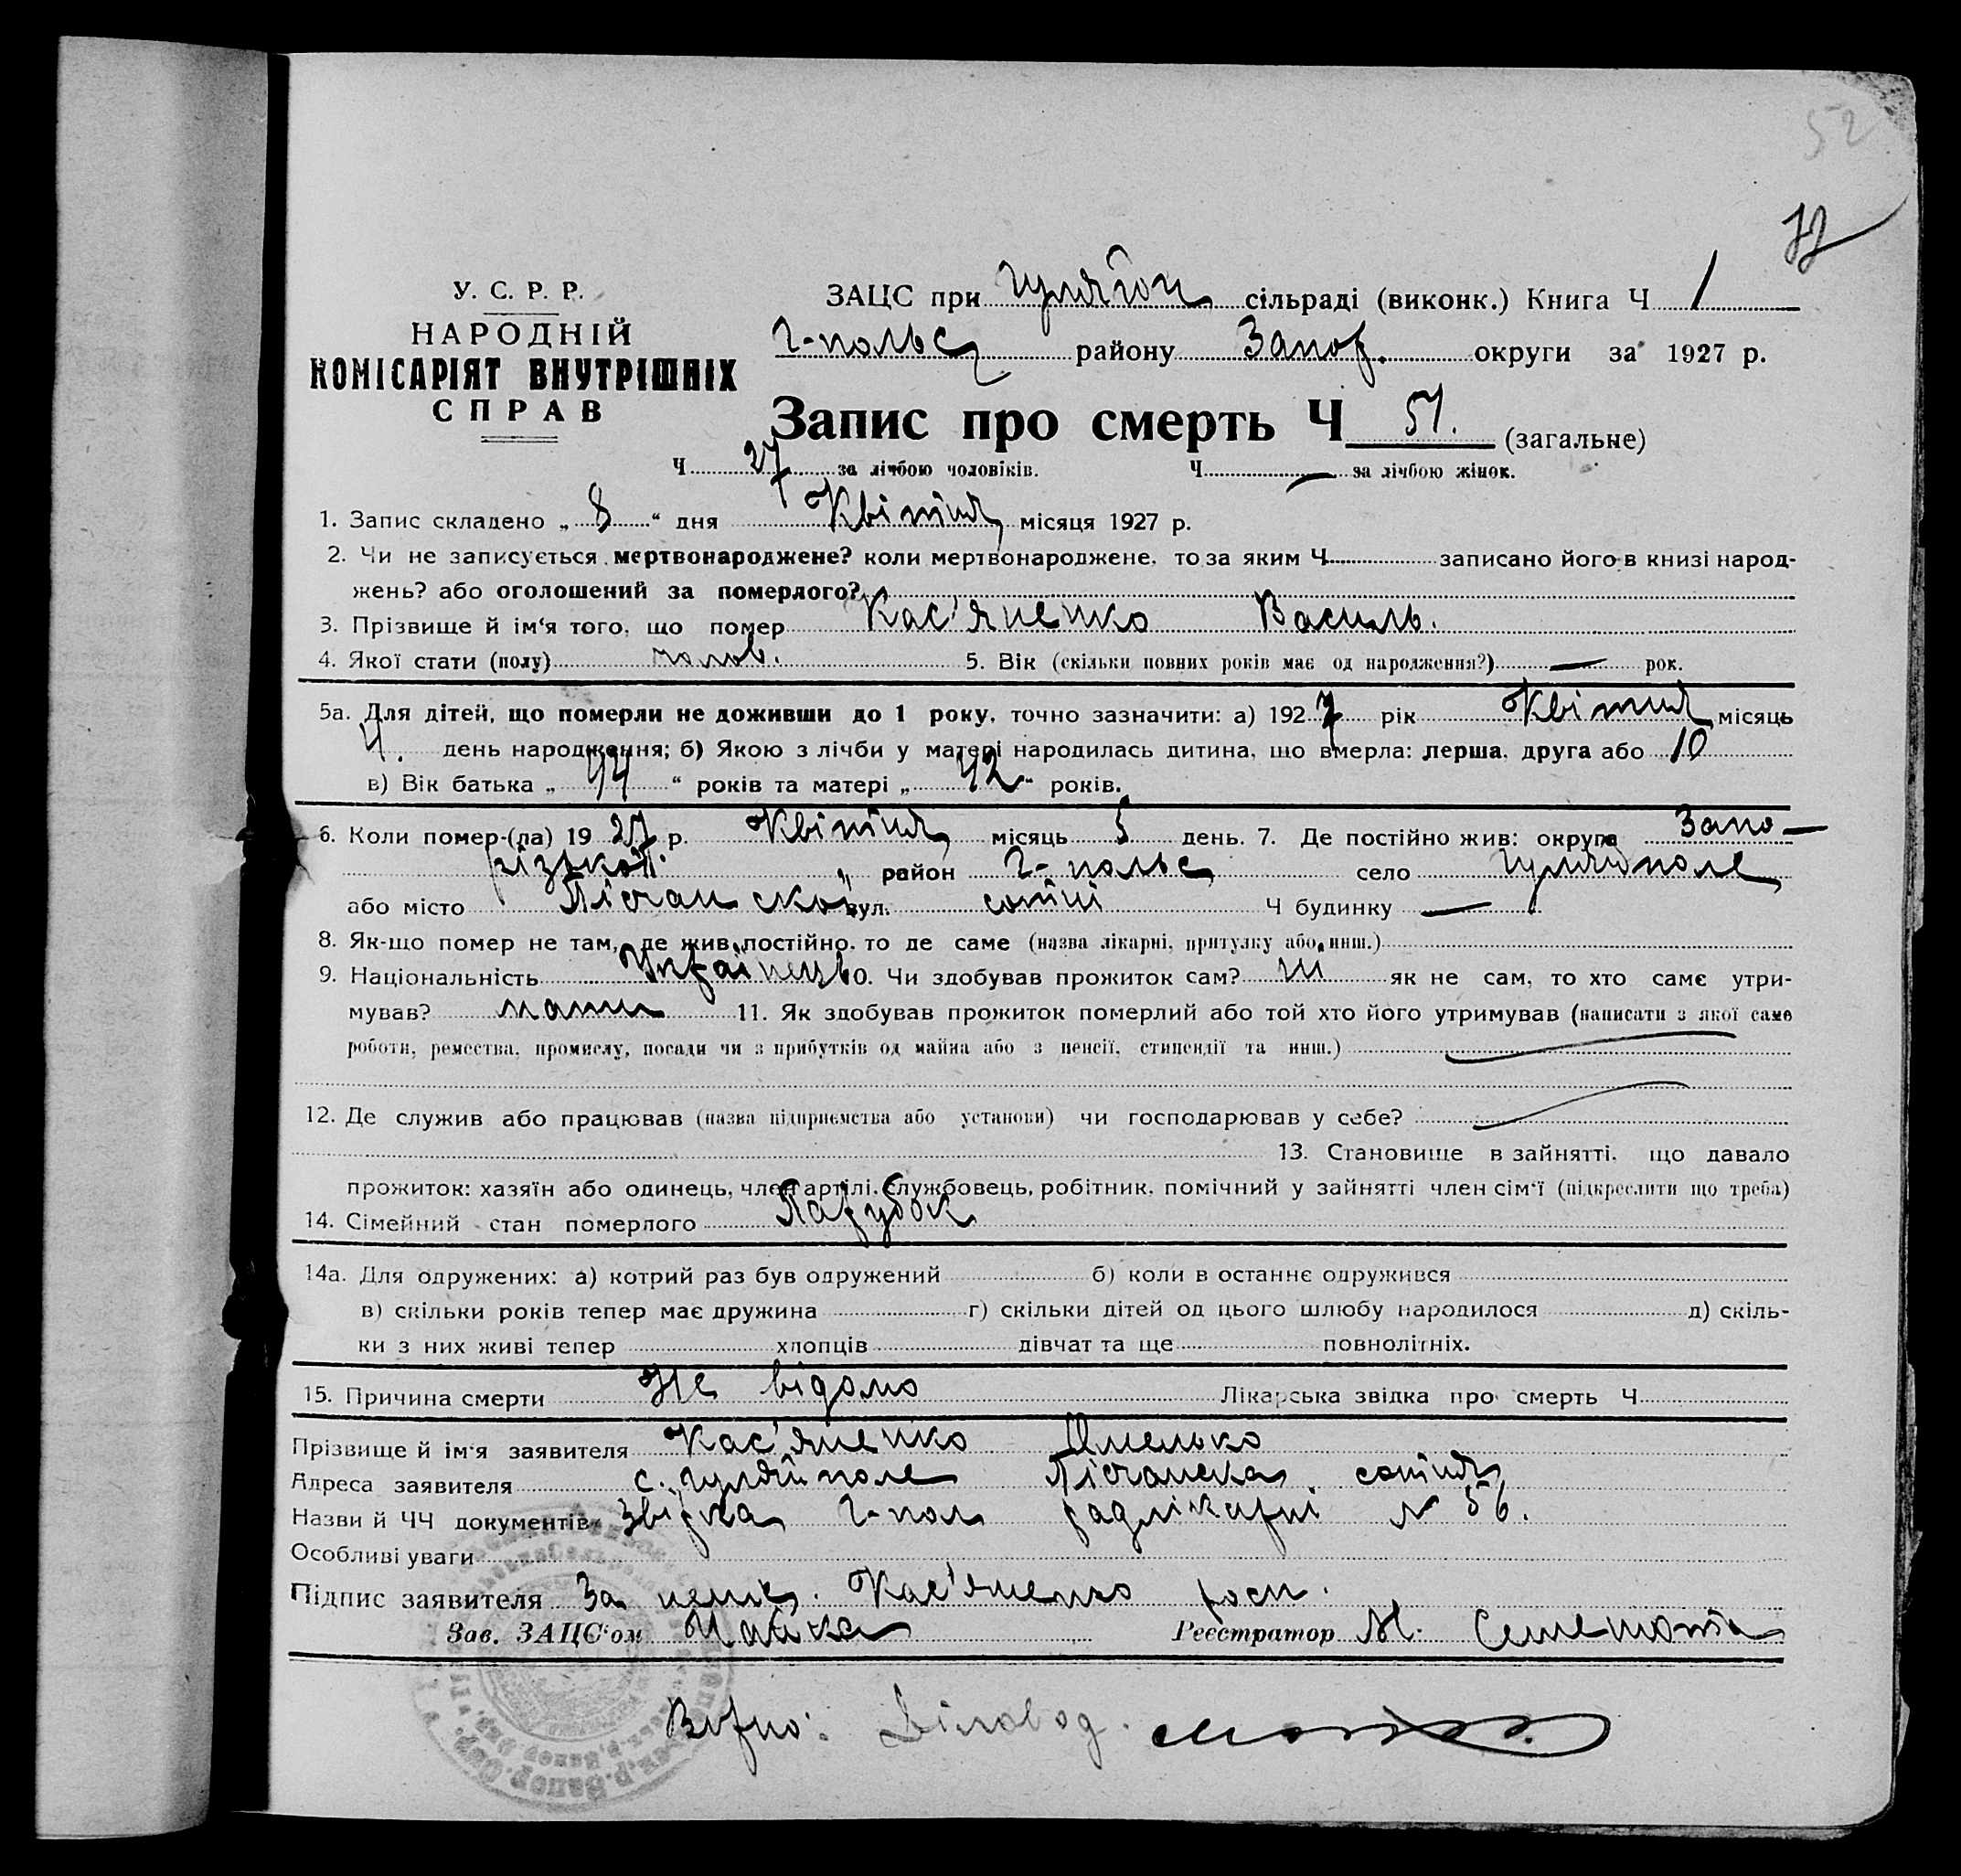 52
У. С. Р. Р.
НАРОДНІЙ
КОМІСАРІЯТ ВНУТРІШНІХ
СПРАВ
ЗАЦС при сільраді (виконк.) Книга Ч 1
Г-польс району Запор. округи за 1927 р.
Запис про смерть Ч 51. (загальне)
Ч 27 за лічбою чоловіків. Ч — за лічбою жінок.
1. Запис складено „ 8 “ дня Квітня місяця 1927 р.
2. Чи не записується мертвонароджене? коли мертвонароджене, то за яким Ч записано його в книзі народ-
жень? або оголошений за померлого?
3. Прізвище й ім‘я того, що помер Кас'яненко Василь.
4. Якої стати (полу) чолов. 5. Вік (скільки повних років має од народження?) — рок.
5а. Для дітей, що померли не доживши до 1 року, точно зазначити: а) 1927 рік Квітня місяць
4. день народження; б) Якою з лічби у матері народилась дитина, що вмерла: перша, друга або 10
в) Вік батька „ 44 “ років та матері „ 42 “ років.
6. Коли помер-(ла) 19 27 р. Квітня місяць 5 день. 7. Де постійно жив: округа Запо-
різької район Г-польс село Гуляйполе
або місто Пісчанської вул. сотні Ч будинку —
8. Як-що помер не там, де жив постійно, то де саме (назва лікарні, притулку або инш.)
9. Національність Українець 10. Чи здобував прожиток сам? ні як не сам, то хто саме утри-
мував? мати 11. Як здобував прожиток померлий або той хто його утримував (написати з якої саме
роботи, ремества, промислу, посади чи з прибутків од майна або з пенсії, стипендії та инш.)
12. Де служив або працював (назва підприємства або установи) чи господарював у себе?
13. Становище в зайнятті, що давало
прожиток: хазяїн або одинець, член артілі, службовець, робітник, помічний у зайнятті член сім‘ї (підкреслити що треба)
14. Сімейний стан померлого Парубок
14а. Для одружених: а) котрий раз був одружений б) коли в останнє одружився
в) скільки років тепер має дружина г) скільки дітей од цього шлюбу народилося д) скіль-
ки з них живі тепер хлопців дівчат та ще повнолітніх.
15. Причина смерти Не відомо Лікарська звідка про смерть Ч
Прізвище й ім‘я заявителя Кас'яненко Омелько
Адреса заявителя с. Гуляйполе Пісчанська сотня
Назви й ЧЧ документів Г-пол райлікарні № 56.
Особливі уваги
Підпис заявителя За непис. Кас'яненко росп.
Зав. ЗАЦС‘ом Чайка Реєстратор М.
Вірно: Діловод.